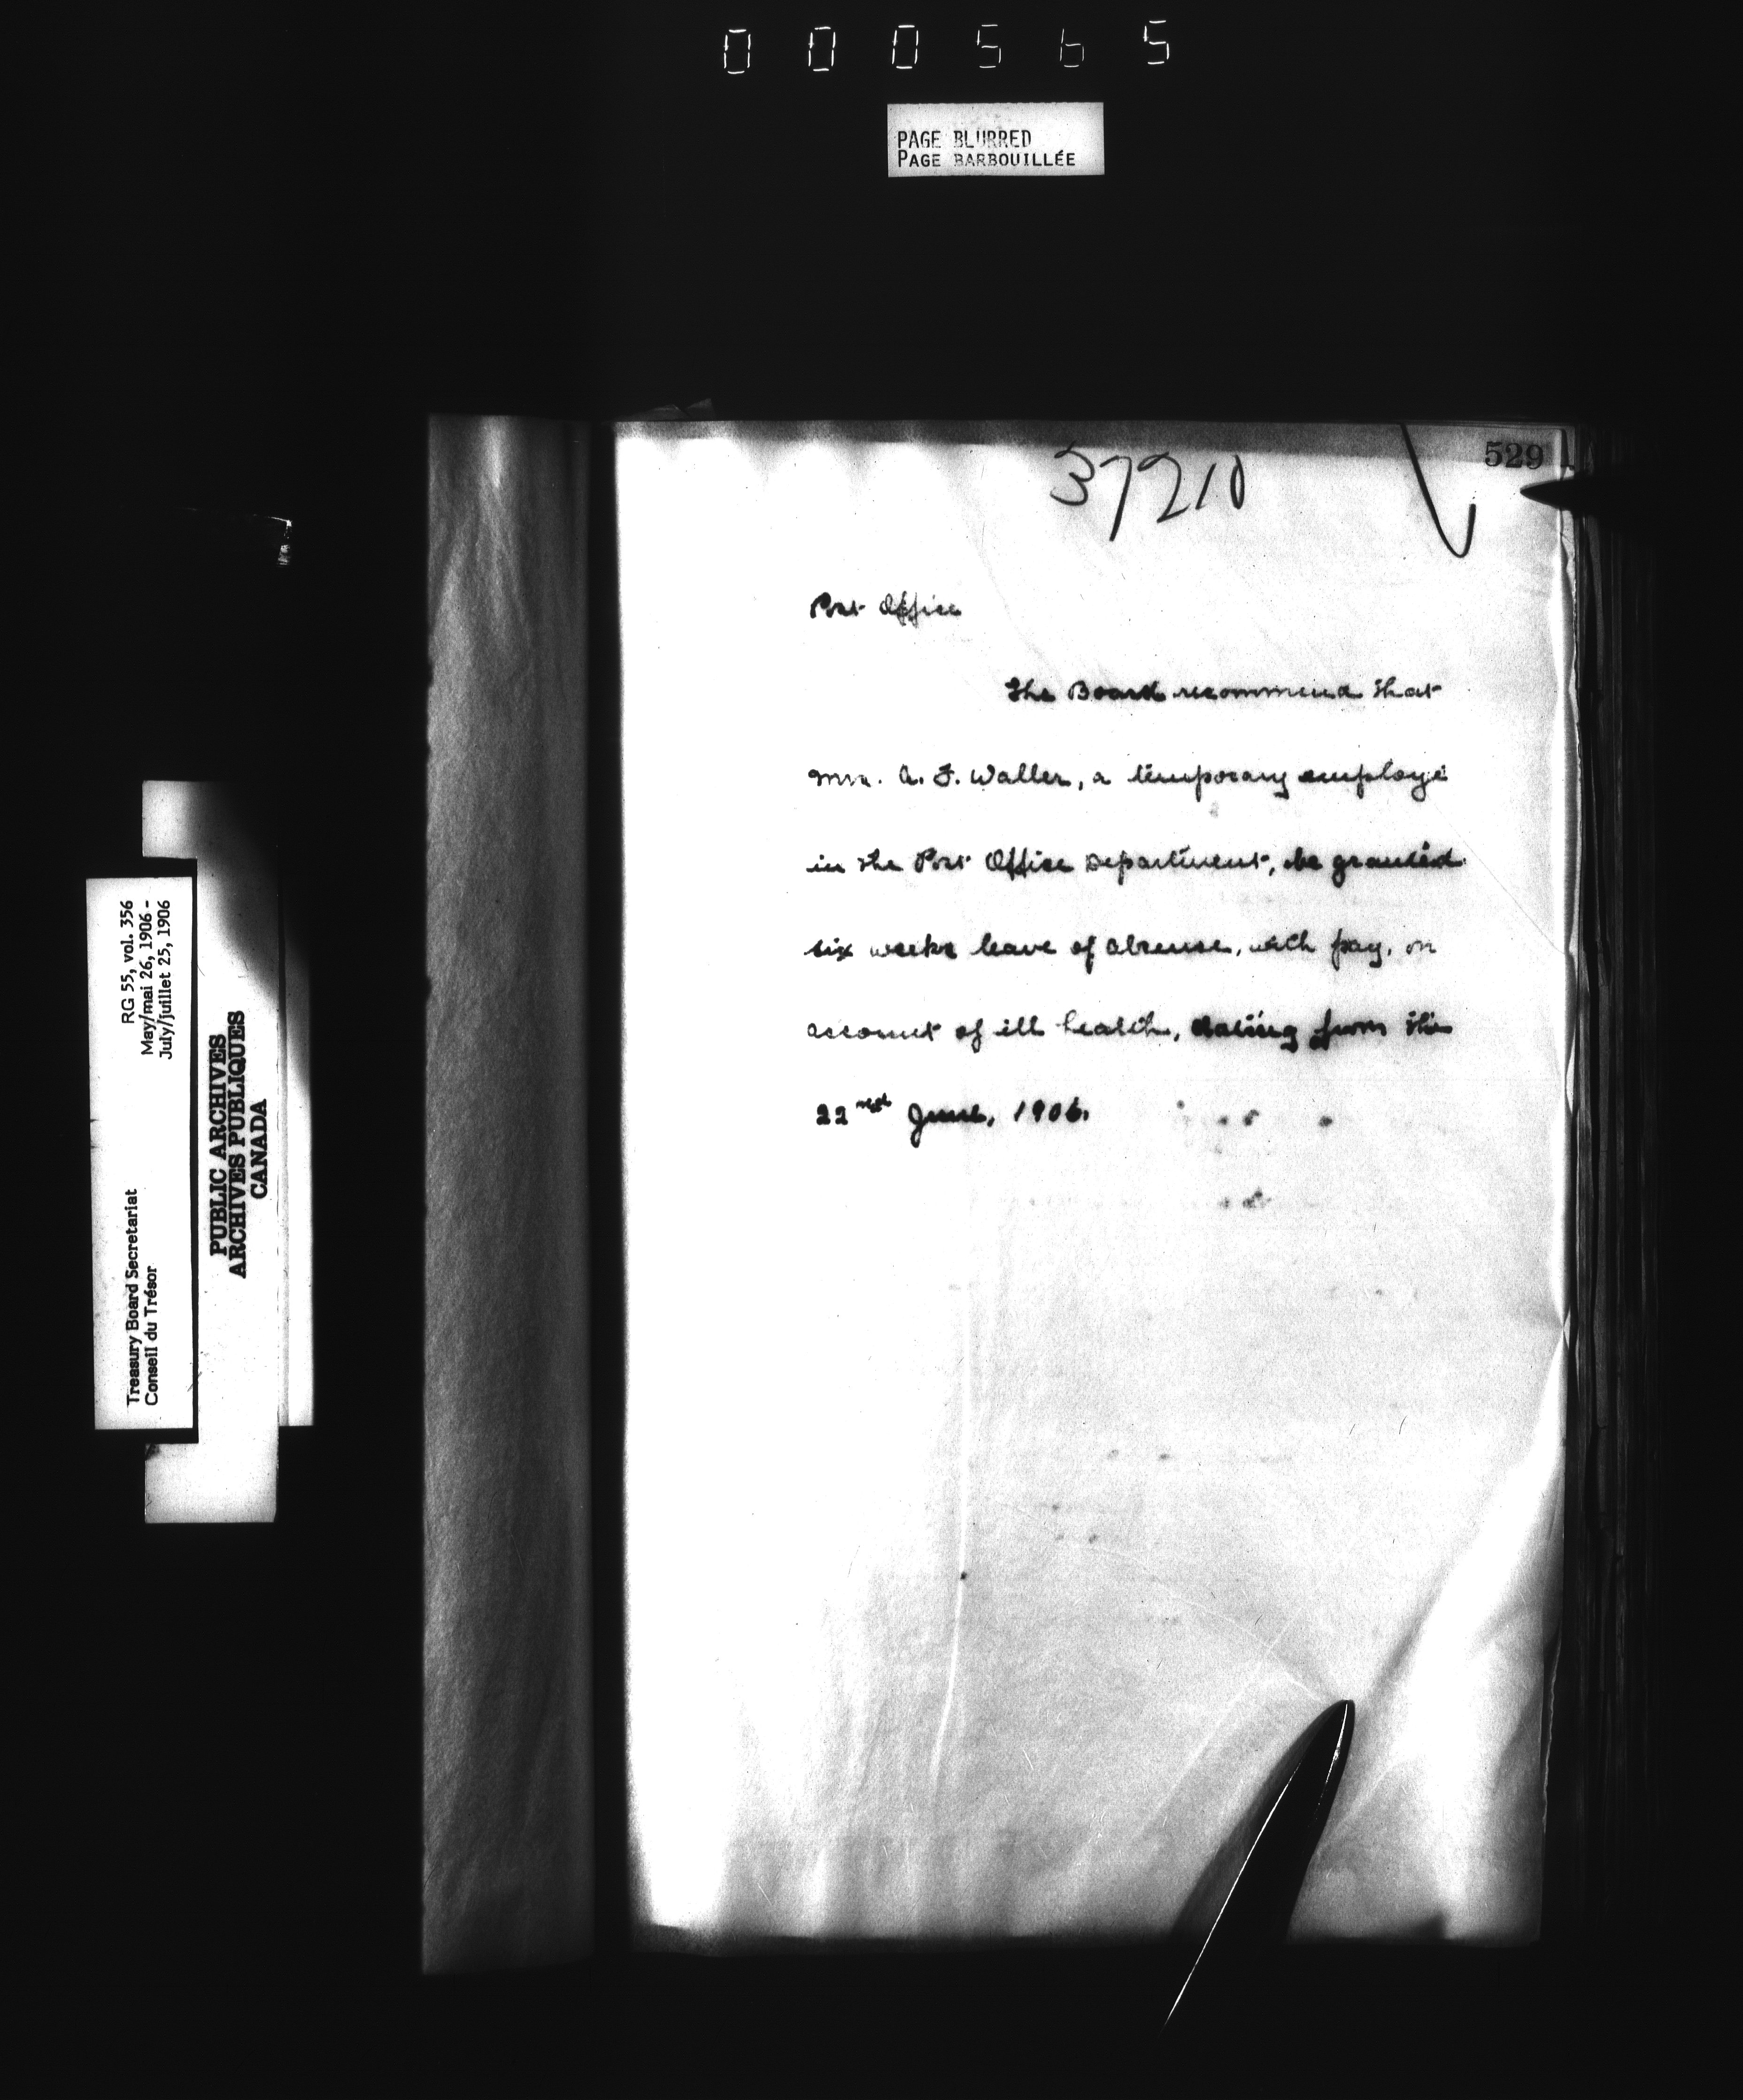 000565
PAGE BLURRED
PAGE BARBOUILLÉE
529
37210
Post Office
The Board recommend that
Mrs. A. F. Waller, a temporary employé
in the Post Office Department, be granted
six weeks leave of absence, with pay, on
account of ill health, dating from the
22nd June, 1906.
RG 55, vol. 356
May/mai 26, 1906 -
July/juillet 25, 1906
Treasury Board Secretariat
Conseil du Trésor
PUBLIC ARCHIVES
ARCHIVES PUBLIQUES
CANADA